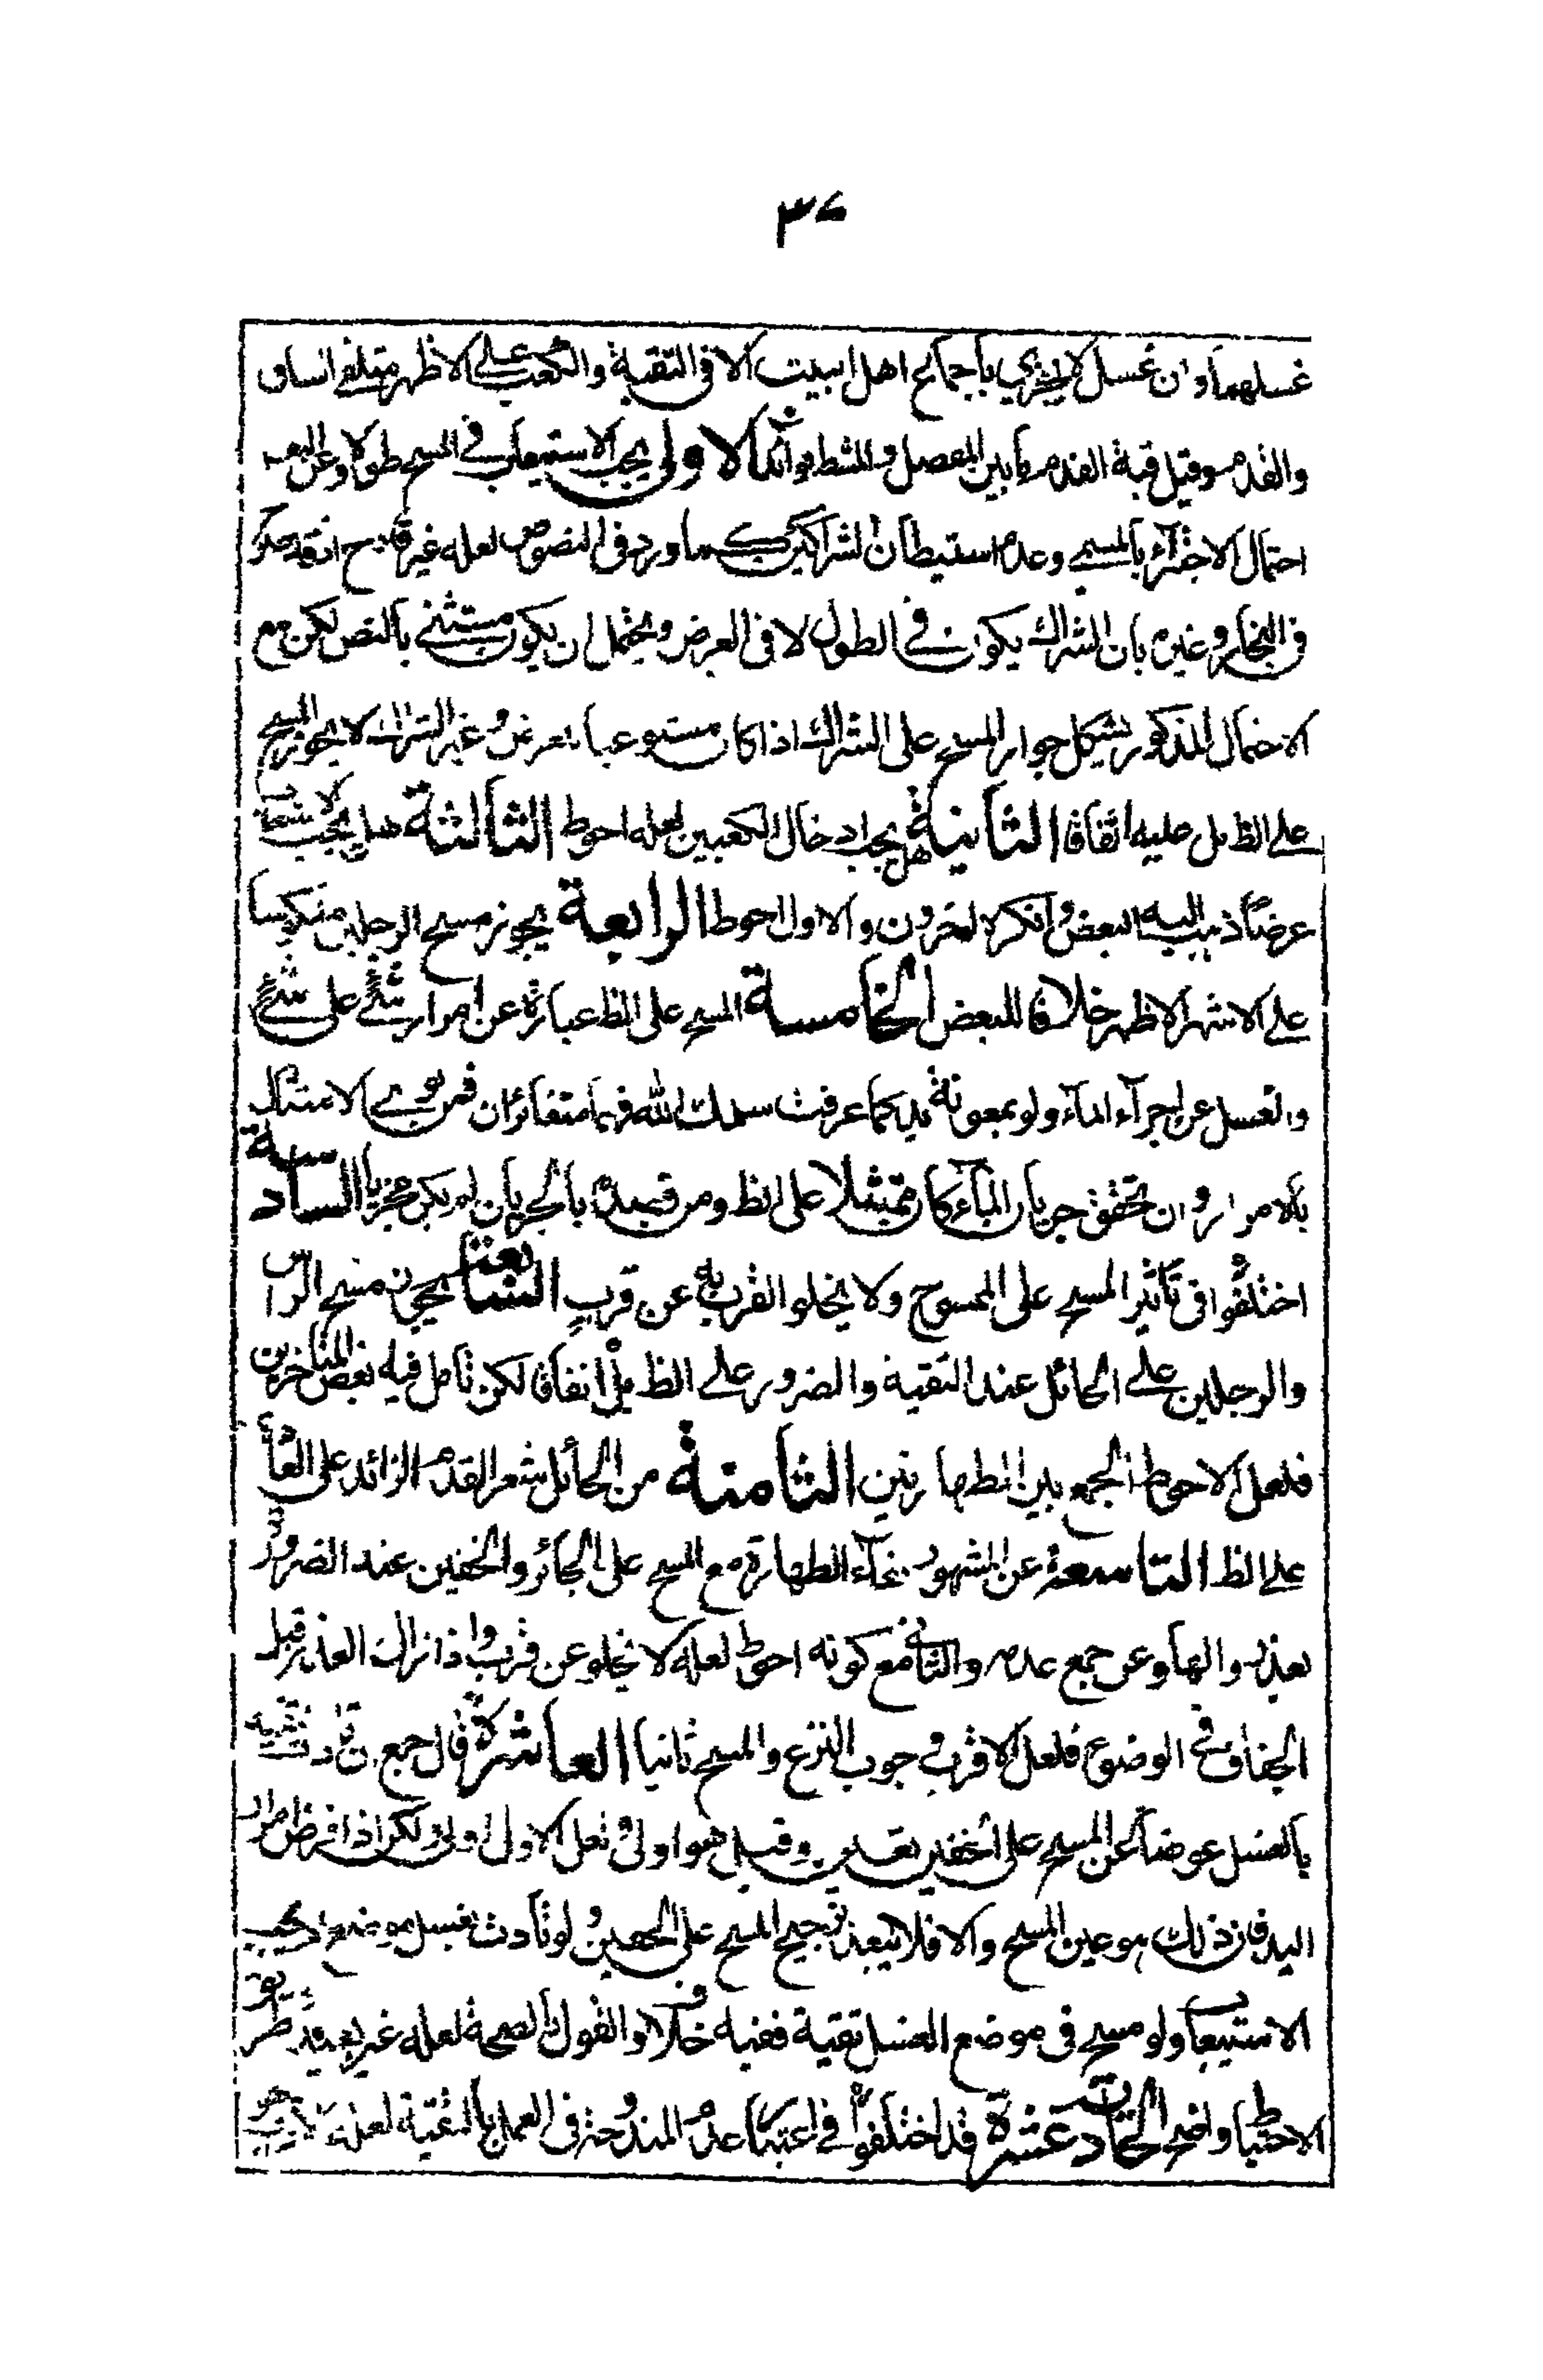 ٣٧
غسلهما وان غسل لا يجزي باجماع اهل البيت الا فى التقية والكعب على الاظهر ملتقى الساق
والقدم وقيل قبة القدم ما بين المفصل والمشط فوائد الاولى يجب الاستيعاب في المسح طولا وعن البعض
احتمال الاجتزاء بالمسمى وعدم استبطان الشراكين كما ورد فى النصوص لعله غير قادح
فى البحار وغيره بان الشراك يكون في الطول لا فى العرض ويحتمل ان يكون مستثنى بالنص لكن مع
الاحتمال المذكور يشكل جواز المسح على الشراك اذا كان مستوعبا للعرض وغير الشراك لا يجوز المسح
على الظ بل عليه اتفاقا الثانية هل يجب ادخال الكعبين لعله احوط الثالثة هل يجب الاستيعاب
عرضا ذهب اليه البعض وانكره اخرون والاول احوط الرابعة يجوز مسح الرجلين منكوسا
على الاشهر الاظهر خلافا للبعض الخامسة المسح على الظ عبارة عن امرار شئ على شئ
والغسل عن اجراء الماء ولو بمعونة يد كما عرفت سلمك الله فهما متغائران فمن نوى الامتثال
بالامرار وان تحقق جريان الماء كان ممتثلا على الظ ومن قصده بالجريان لم يكن مجزيا السادسة
اختلفوا فى تأثير المسح على الممسوح ولا يخلو القرب به عن قرب السابعة يجوز مسح الراس
والرجلين على الحائل عند التقية والضرور على الظ بل اتفاقا لكن تامل فيه بعض المتاخرين
فلعل الاحوط الجمع بين الطهارتين الثامنة من الحائل شعر القدم الزائد على العادة
على الظ التاسعة عن المشهور بقاء الطهارة مع المسح على الجبائر والخفين عند الضرورة
بعد زوالها وعن جمع عدمه والثانى مع كونه احوط لعله لا يخلو عن قرب واذا زال العذر قبل
الجفاف في الوضوء فلعل الاقرب وجوب النزع والمسح ثانيا العاشرة قال جمع ان تادت التقية
بالغسل عوضا عن المسح على الخفين تعين وقيل هو اولى ولعل الاول اولى لكن اذا فرض امرار
اليد فان ذلك هو عين المسح والا فلا يبعد ترجيح المسح على الخفين ولو تادت بغسل موضع
الاستيعاب ولو مسح فى موضع الغسل تقية ففيه خلاف والقول بالصحة لعله غير بعيد وطريق
الاحتياط واضح الحادية عشرة قد اختلفوا في اعتبار عدم المندوحة فى العمل بالتقية لعله